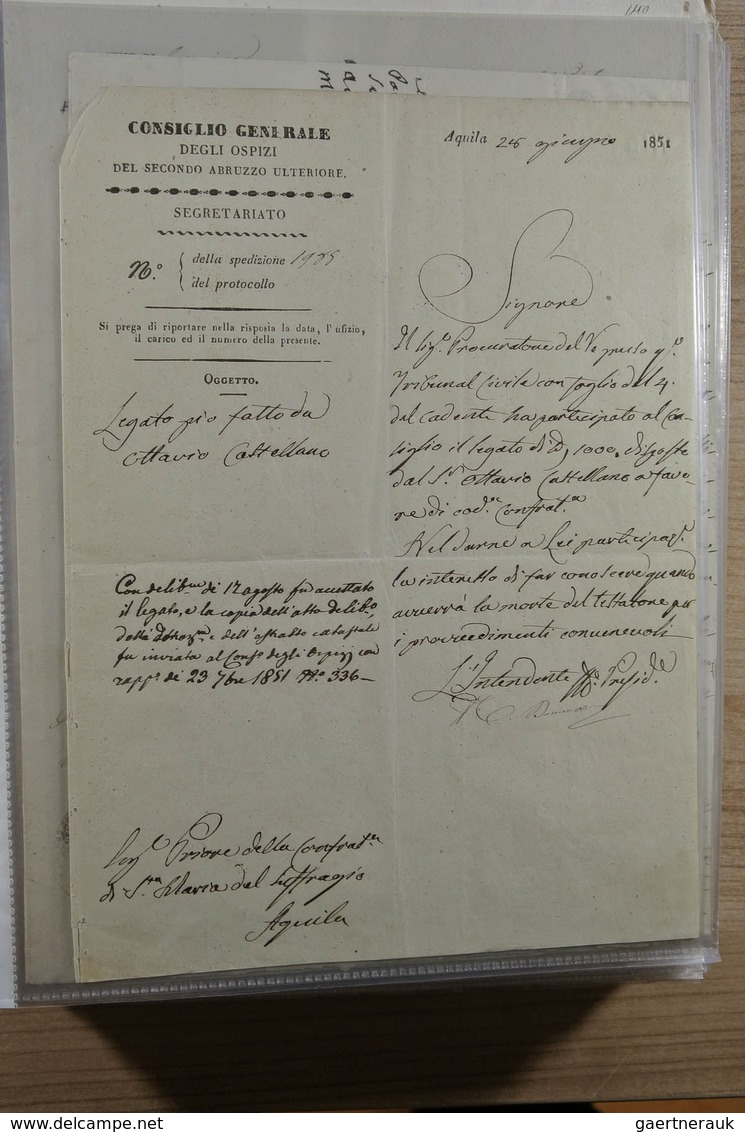 140
CONSIGLIO GENERALE
DEGLI OSPIZI
DEL SECONDO ABRUZZO ULTERIORE.
SEGRETARIATO
N.º
della spedizione 1985
del protocollo
Si prega di riportare nella risposta la data, l' ufizio,
il carico ed il numero della presente.
OGGETTO.
Legato pio fatto da
Ottavio Castellano
Con delib.ne di 12 agosto fu accettato
il legato, e la copia dell'atto delib.o
della e dell'estratto catastale
fu inviata al Cons.o degli Ospizj con
rapp.o di 23 7bre 1851 N.o 336 —
Sig.r Priore della Confrat.a
di S.ta Maria del Suffragio
Aquila
Aquila 28 giugno 1851
Signore
Il Sig.r Procuratore del Re presso q.o
Tribunal Civile con foglio del 4.
del cadente ha participato al Con-
siglio il legato di D. 1000. disposto
dal S.r Ottavio Castellano a favo-
re di cod.a Confrat.a
Nel darne a Lei
la interesso di far conoscere quando
avverrà la morte del testatore per
i provvedimenti convenevoli
L'Intendente Presid.e
gaertnerauk@